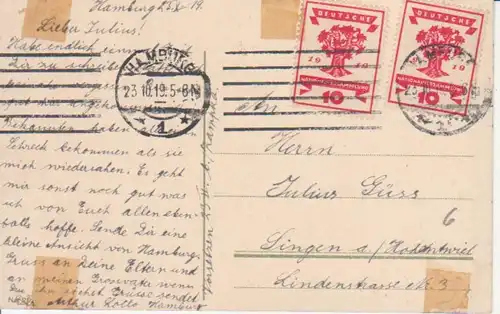 Hamburg 23.X.19.
Lieber Julius!
Habe endlich einmal
Dir zu schreiben
gut
Bekannten haben
Schreck bekommen als sie
mich wiedersahen. Es geht
mir sonst noch gut was
ich von Euch allen eben-
falls hoffe. Sende Dir eine
kleine Ansicht von Hamburg
Gruss an Deine Eltern und
an meinen wenn
Du ihn siehst Grüsse sendet
Arthur Hamburg
Vorsetzen 23
HAMBURG
23.10.19.5-6N
* 1 *
DEUTSCHE
1919
NATIONALVERSAMMLUNG
10
DEUTSCHE
1919
NATIONALVERSAMMLUNG
10
HAMBURG
23.10.
An
Herrn
Julius Güss
Singen a/Hohentwiel
Lindenstrasse № 3
6